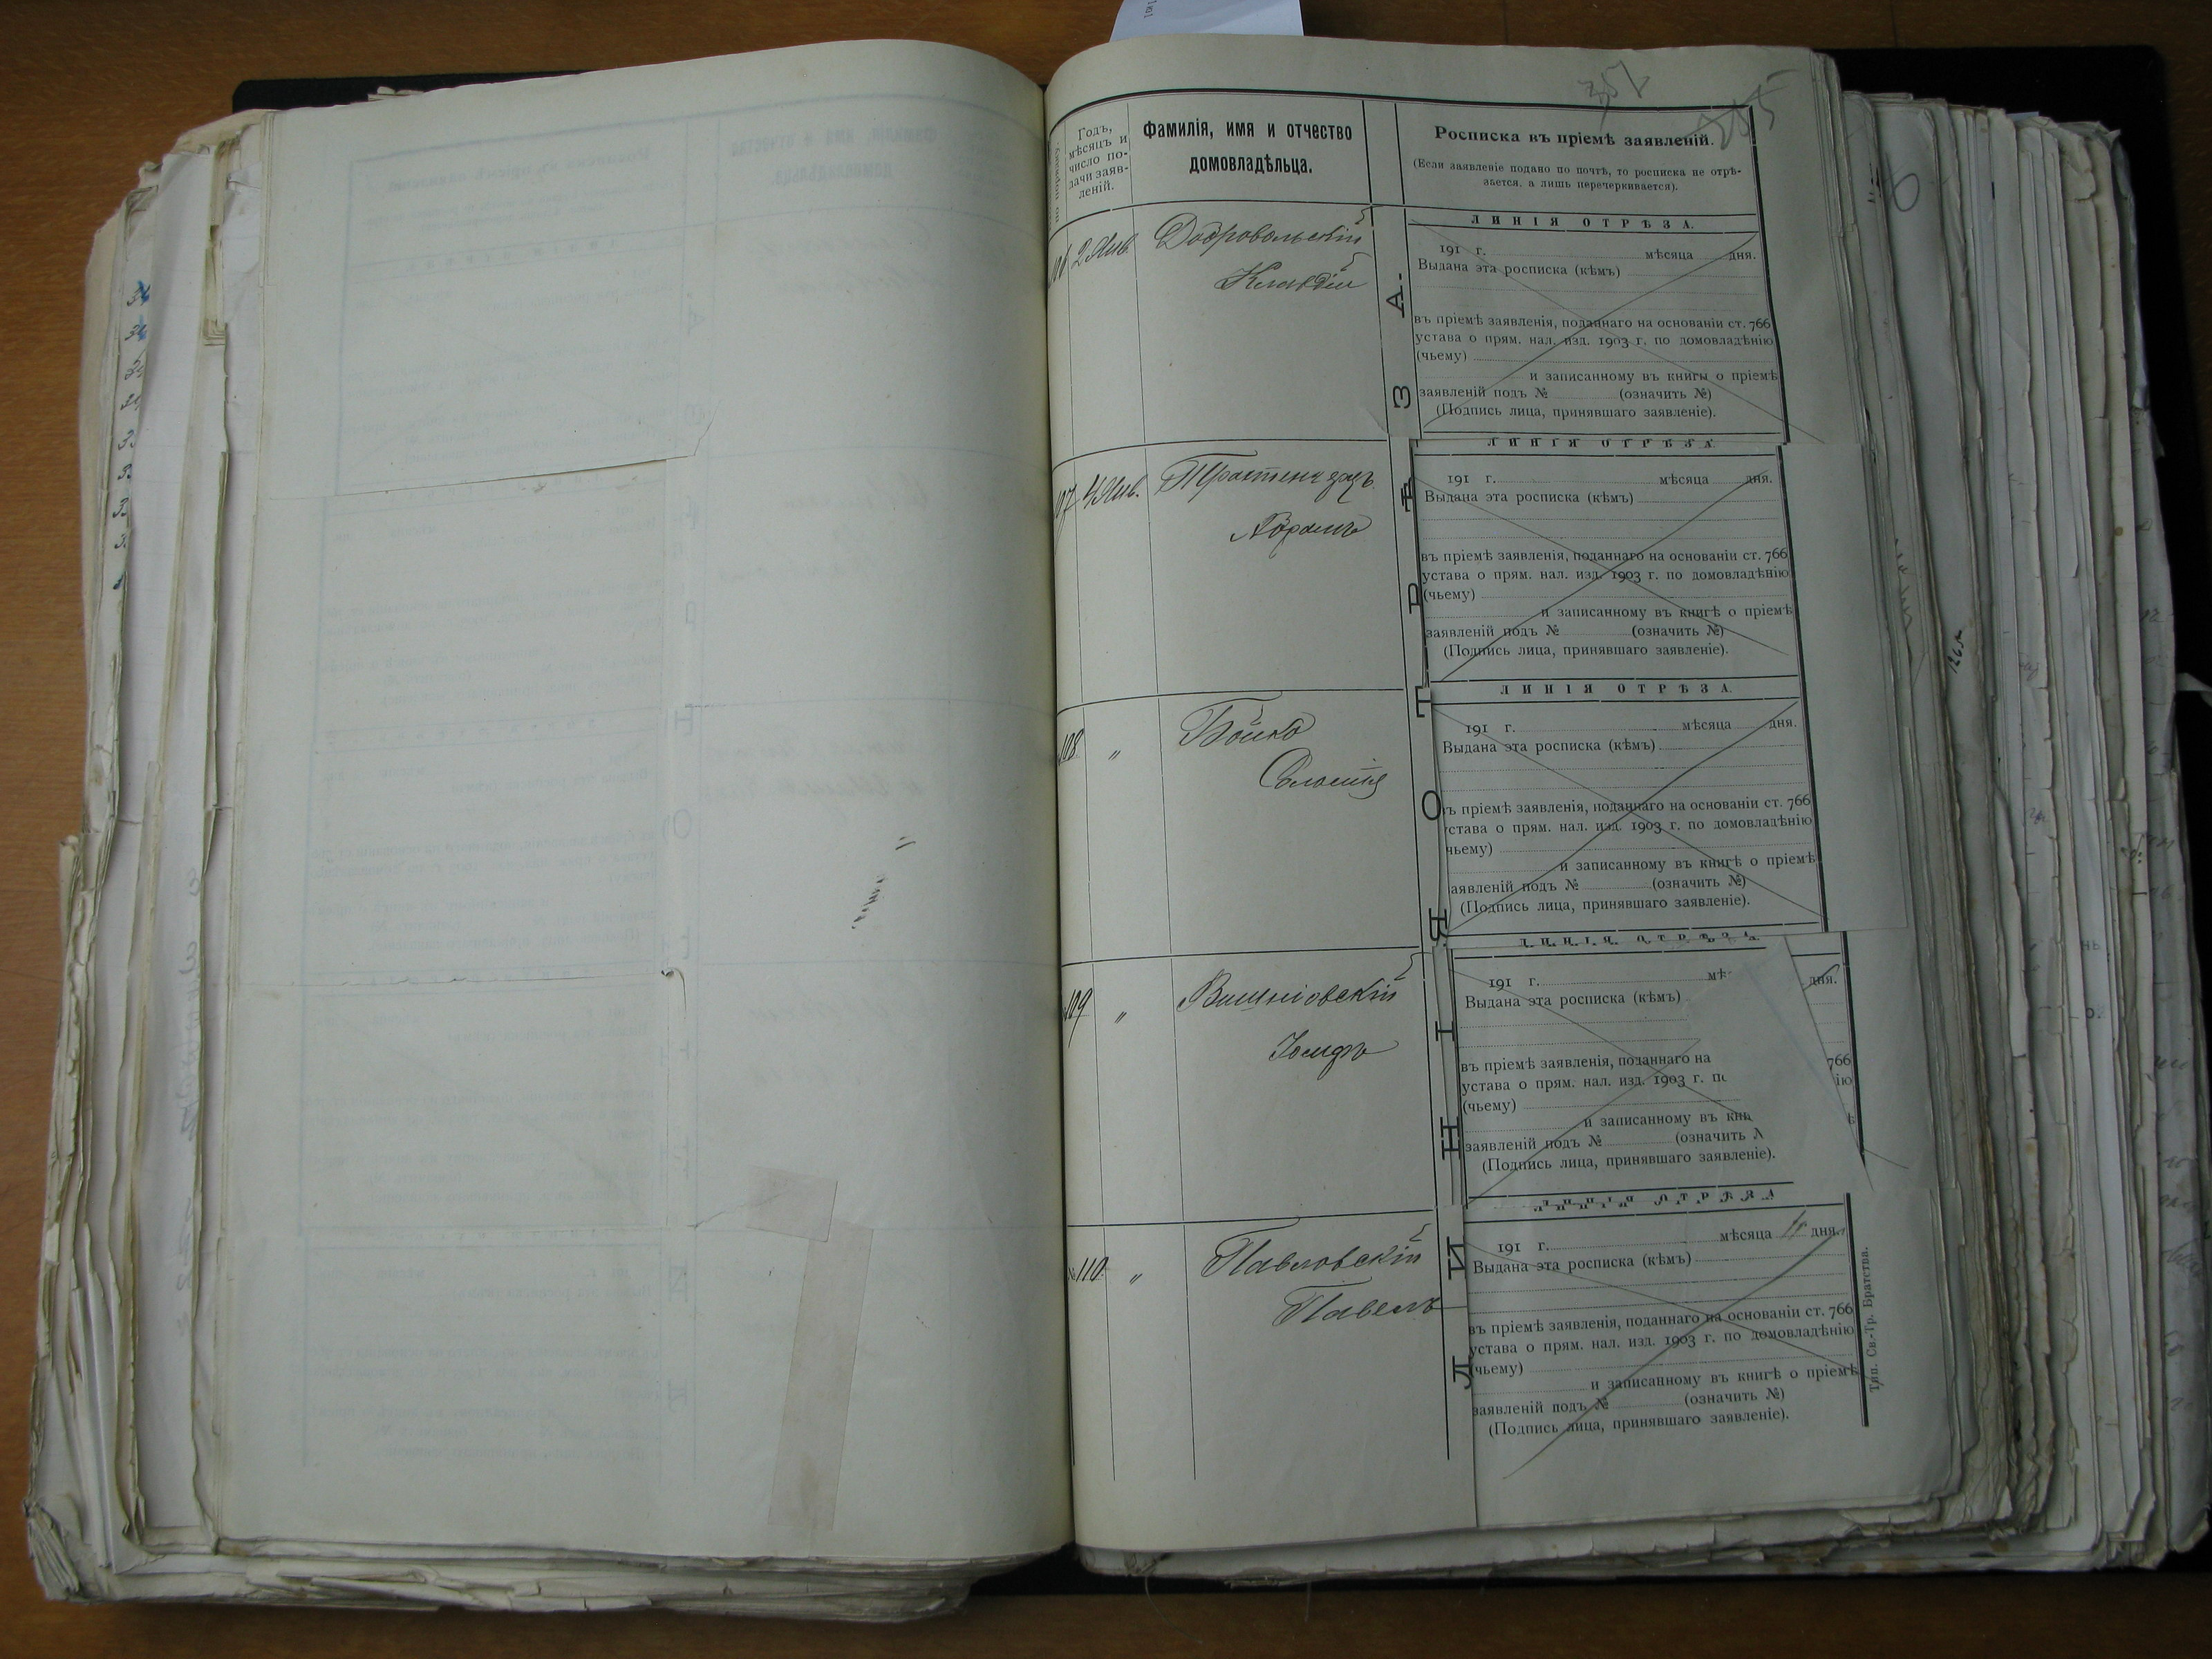 Годъ,
мѣсяцъ и
число по-
дачи заяв-
леній.
Фамилія, имя и отчество
домовладѣльца.
Росписка въ пріемѣ заявленій.
(Если заявленіе подано по почтѣ, то росписка не отрѣ-
зается, а лишь перечеркивается).
106 2 Янв. Добровольскій
Клавдій
ЛИНІЯ ОТРѢЗА.
191 г. мѣсяца дня.
Выдана эта росписка (кѣмъ)
въ пріемѣ заявленія, поданнаго на основаніи ст. 766
устава о прям. нал. изд. 1903 г. по домовладѣнію
(чьему)
и записанному въ книгы о пріемѣ
заявленій подъ № (означить №)
(Подпись лица, принявшаго заявленіе).
107 4 Янв.
Абрамъ
ЛИНІЯ ОТРѢЗА.
191 г. мѣсяца дня.
Выдана эта росписка (кѣмъ)
въ пріемѣ заявленія, поданнаго на основаніи ст. 766
устава о прям. нал. изд. 1903 г. по домовладѣнію
(чьему)
и записанному въ книгѣ о пріемѣ
заявленій подъ № (означить №)
(Подпись лица, принявшаго заявленіе).
108 " Бойко
ЛИНІЯ ОТРѢЗА.
191 г. мѣсяца дня.
Выдана эта росписка (кѣмъ)
въ пріемѣ заявленія, поданнаго на основаніи ст. 766
устава о прям. нал. изд. 1903 г. по домовладѣнію
чьему)
и записанному въ книгѣ о пріемѣ
аявленій подъ № (означить №)
(Подпись лица, принявшаго заявленіе).
109 " Вишніовскій
Іосифъ
ЛИНІЯ ОТРѢЗА
191 г. мѣ дня.
Выдана эта росписка (кѣмъ)
въ пріемѣ заявленія, поданнаго на 766
устава о прям. нал. изд. 1903 г. по ію
(чьему)
и записанному въ кни ѣ
заявленій подъ № (означить №
(Подпись лица, принявшаго заявленіе).
№ 110 " Павловскій
Павелъ
ЛИНІЯ ОТРѢЗА
191 г. мѣсяца дня.
Выдана эта росписка (кѣмъ)
въ пріемѣ заявленія, поданнаго на основаніи ст. 766
устава о прям. нал. изд. 1903 г. по домовладѣнію
(чьему)
и записанному въ книгѣ о пріемѣ
заявленій подъ № (означить №)
(Подпись лица, принявшаго заявленіе).
ЛИНІЯ ОТРѢЗА.
Тип. Св.-Тр. Братства.